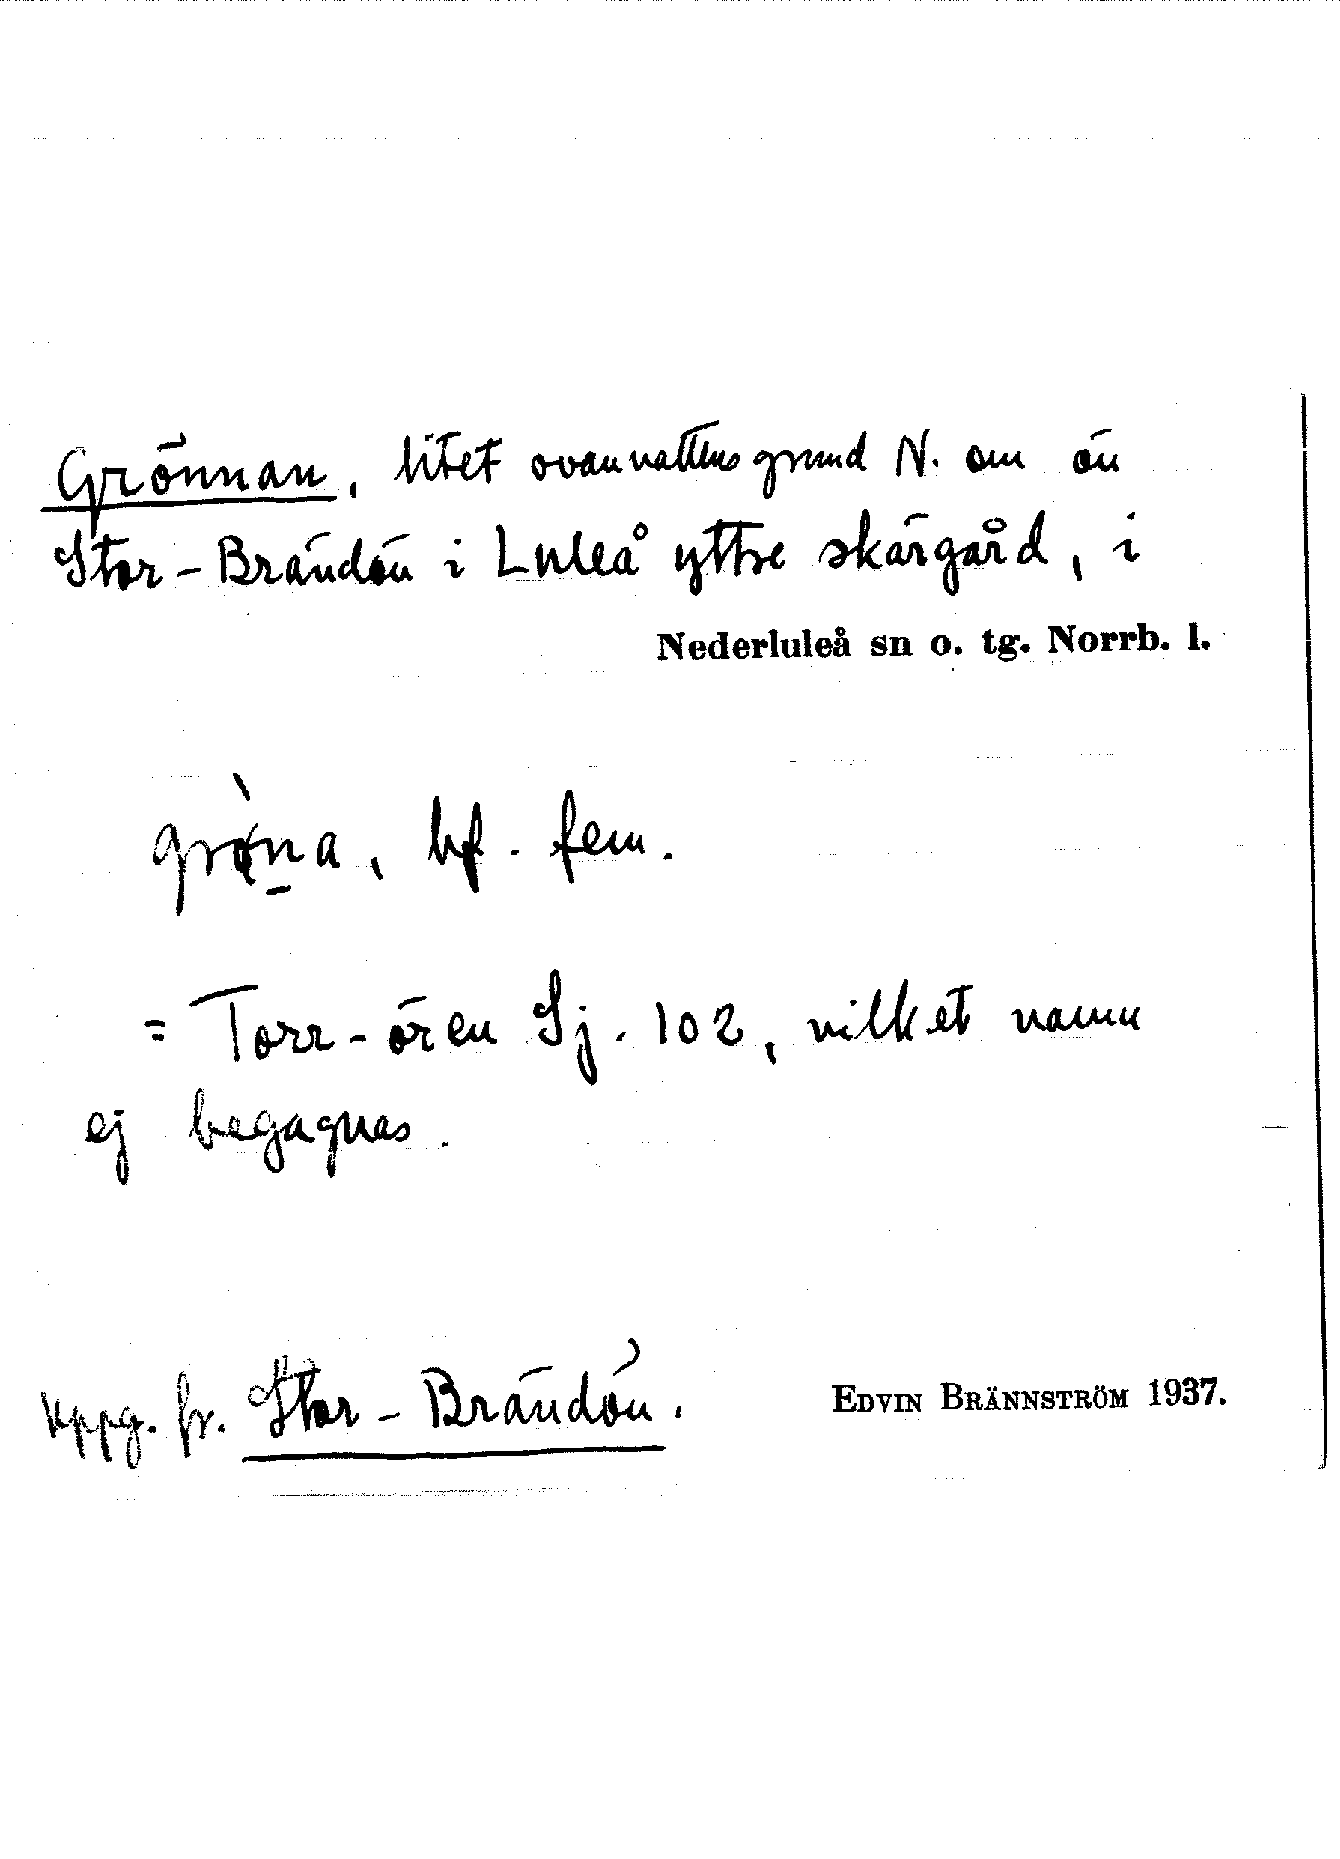 Grönnan, litet ovanvattensgrund N. om ön
Stor-Brändön i Luleå yttre skärgård, i
Nederluleå sn o. tg. Norrb. l.
grø̀n̲a, bf. fem.
= Torr-ören Sj. 102, vilket namn
ej begagnas.
Uppg. fr. Stor-Brändön.
EDVIN BRÄNNSTRÖM 1937.